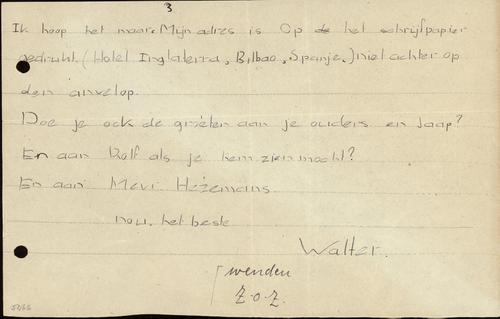 3
Ik hoop het maar. Mijn adres is Op de het schrijfpapier
gedrukt. (Hotel Inglaterra, Bilbao, Spanje.) niet achter op
den anvelop.
Doe je ook de groeten aan je ouders en Jaap?
En aan Rolf als je hem zien mocht?
En aan Mevr. Heijemans
nou, het beste
Walter.
wenden
Z.O.Z.